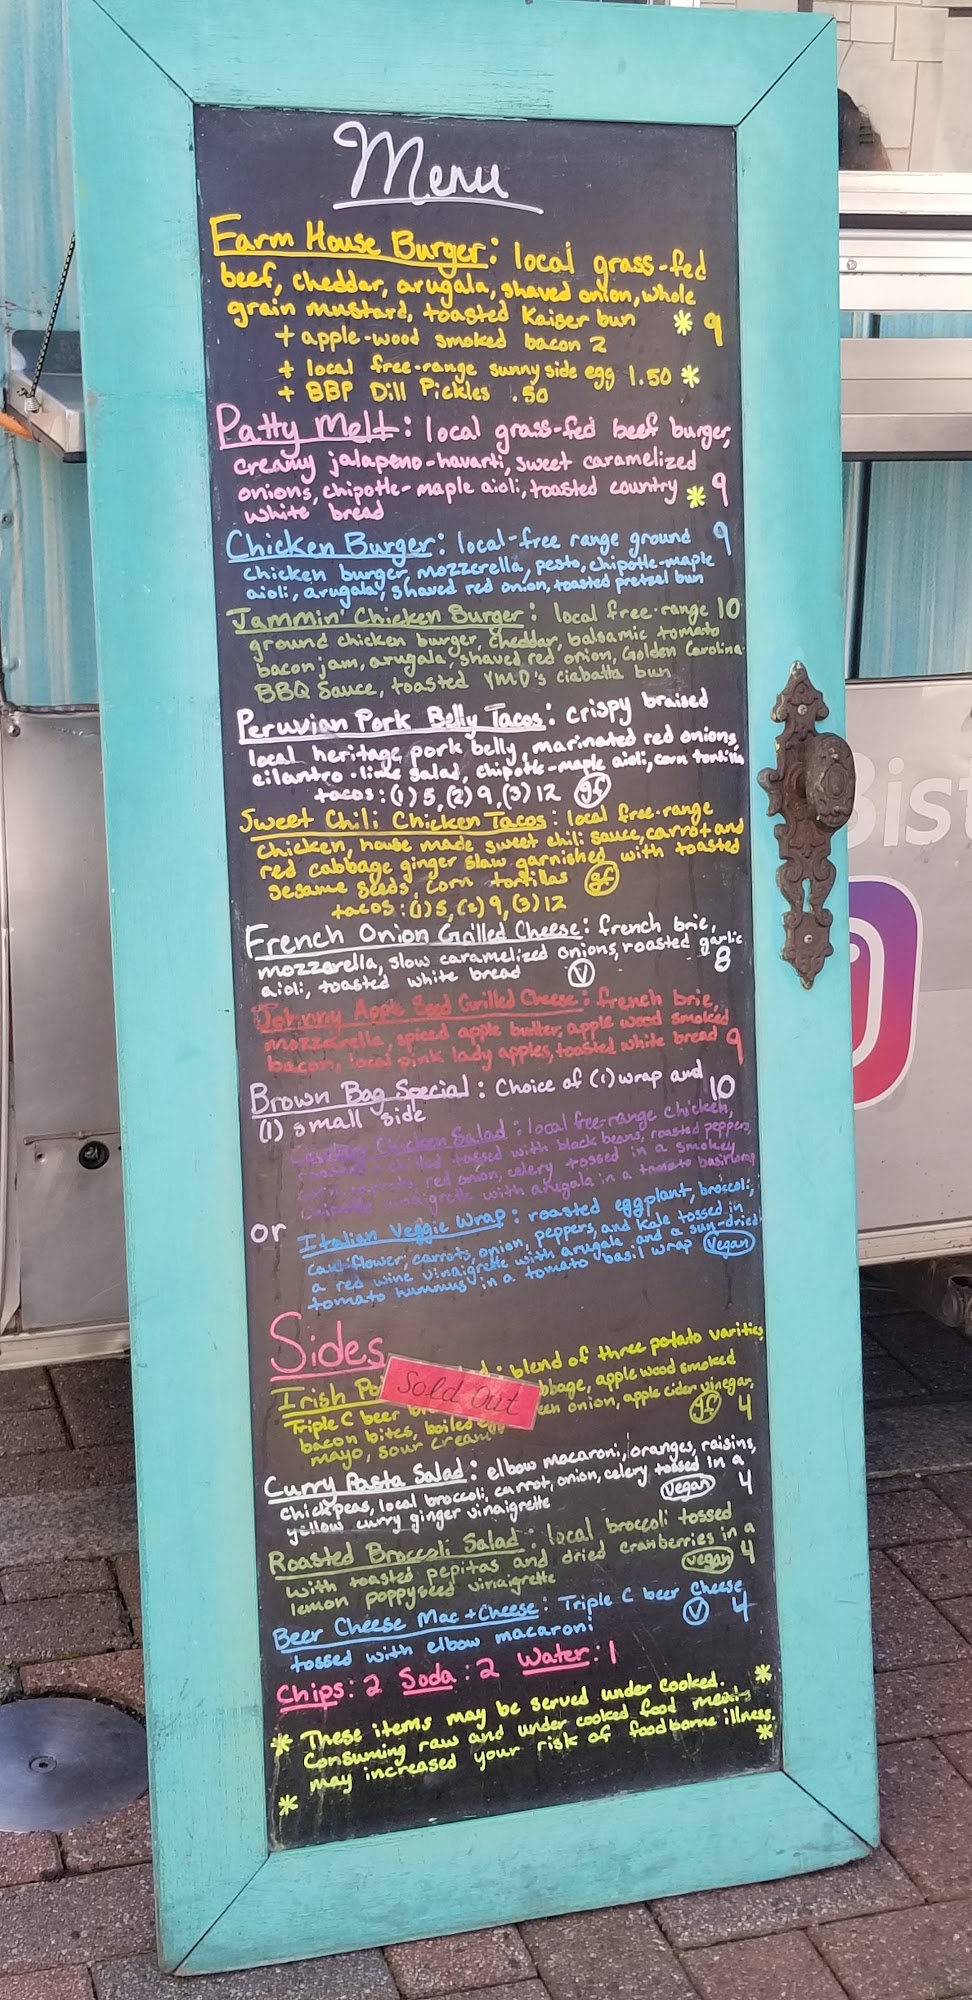 Menu
Farm House Burger: local grass-fed
beef, cheddar, arugala, shaved onion, whole
grain mustard, toasted Kaiser bun * 9
+ apple-wood smoked bacon 2
+ local free-range sunny side egg 1.50 *
+ BBP Dill Pickles .50
Patty Melt: local grass-fed beef burger,
creamy jalapeno-havarti, sweet caramelized
onions, chipotle-maple aioli, toasted country * 9
white bread
Chicken Burger: local-free range ground 9
chicken burger, mozzerella, pesto, chipotle-maple
aioli, arugala, shaved red onion, toasted pretzel bun
Jammin' Chicken Burger: local free-range 10
ground chicken burger, cheddar, balsamic tomato
bacon jam, arugala, shaved red onion, Golden Carolina
BBQ Sauce, toasted YMD's ciabatta bun
Peruvian Pork Belly Tacos: crispy braised
local heritage pork belly, marinated red onions,
cilantro-lime salad, chipotle-maple aioli, corn tortillas
tacos: (1) 5, (2) 9, (3) 12 gf
Sweet Chili Chicken Tacos: local free-range
chicken, house made sweet chili sauce, carrot and
red cabbage ginger slaw garnished with toasted
sesame seeds, corn tortillas gf
tacos: (1) 5, (2) 9, (3) 12
French Onion Grilled Cheese: french brie,
mozzarella, slow caramelized onions, roasted garlic 8
aioli, toasted white bread V
Johnny Apple Seed Grilled Cheese: french brie,
mozzarella, spiced apple butter, apple wood smoked
bacon, local pink lady apples, toasted white bread 9
Brown Bag Special: Choice of (1) wrap and 10
(1) small side
Chicken Salad: local free-range chicken,
chilled tossed with black beans, roasted peppers,
corn, carrots, red onion, celery tossed in a smokey
vinaigrette with arugala in a tomato basil wrap
or Italian Veggie Wrap: roasted eggplant, broccoli,
cauliflower, carrots, onion, peppers, and kale tossed in
a red wine vinaigrette with arugala and a sun-dried
tomato hummus in a tomato basil wrap Vegan
Sides
Irish Po : blend of three potato varities,
Sold Out
Triple C beer bbage, apple wood smoked
bacon bites, boiled egg een onion, apple cider vinegar,
mayo, sour cream gf 4
Curry Pasta Salad: elbow macaroni, oranges, raisins,
chickpeas, local broccoli, carrot, onion, celery tossed in a
yellow curry ginger vinaigrette vegan 4
Roasted Broccoli Salad: local broccoli tossed
with toasted pepitas and dried cranberries in a
lemon poppyseed vinaigrette vegan 4
Beer Cheese Mac + Cheese: Triple C beer cheese
tossed with elbow macaroni V 4
Chips: 2 Soda: 2 Water: 1
* These items may be served under cooked. *
Consuming raw and under cooked food meats
may increased your risk of foodborne illness. *
*
Bist